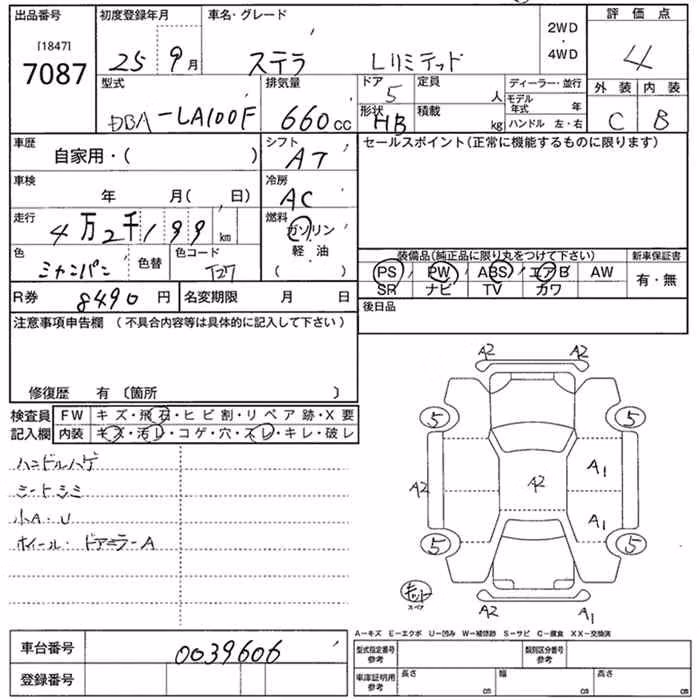 出品番号 初度登録年月 車名・グレード 2WD・4WD 評価点
［1847］
7087 25 9月 ステラ Lリミテッド 4
型式 排気量 ドア 定員 ディーラー・並行 外装 内装
5 人 モデル年式 年
DBA-LA100F 660cc 形状 積載 ハンドル 左・右 C B
HB kg
車歴 シフト セールスポイント(正常に機能するものに限ります)
自家用・( ) AT
車検 冷房
年 月( 日) AC
走行 燃料
4万2千199km ガソリン
色 色替 色コード 軽・油 装備品(純正品に限り丸をつけて下さい) 新車保証書
シャンパン T27 ( ) PS PW ABS エアB AW 有・無
SR ナビ TV カワ
R券 8490円 名変期限 月 日 後日品
注意事項申告欄 (不具合内容等は具体的に記入して下さい)
修復歴 有 〔箇所 〕
検査員 FW キズ・飛石・ヒビ割・リペア跡・X要
記入欄 内装 キズ・汚レ・コゲ・穴・スレ・キレ・破レ
ハンドルハゲ
シートシミ
小A・U
ホイール・ドアミラーA
A2 A2
5 5
A1
A2 A2
A1
5 5
スペア
A2 A1
A−キズ E−エクボ U−凹み W−補修跡 S−サビ C−腐食 XX−交換済
車台番号 0039606 型式指定番号 参考 類別区分番号 参考
登録番号 車庫証明用 参考 長さ cm 幅 cm 高さ cm